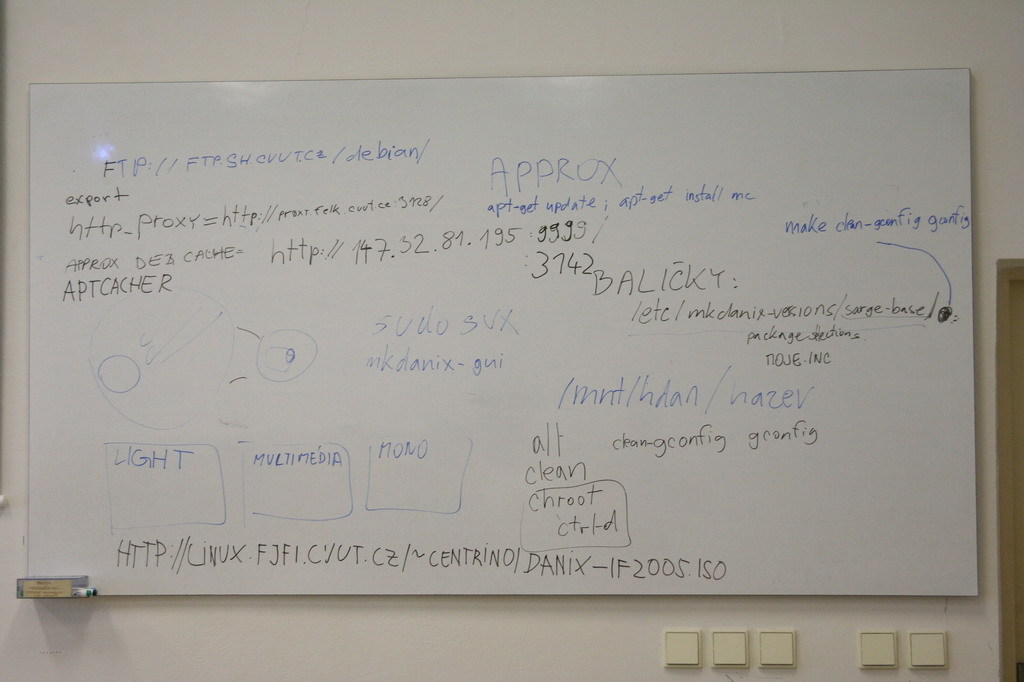 FTP://FTP.SH.CVUT.CZ/debian/
export
http_proxy=http://proxy.felk.cvut.cz:3128/
APPROX DEB CACHE=
http://147.32.81.195:9999/
:3142
APTCACHER
APPROX
apt-get update; apt-get install mc
make clean-gconfig gconfig
BALÍČKY:
/etc/mkdanix-versions/sarge-base/
package selections
MOJE.INC
sudo svx
mkdanix-gui
/mnt/hdan/nazev
all clean-gconfig gconfig
clean
chroot
ctrl-d
LIGHT
MULTIMÉDIA
MONO
HTTP://LINUX.FJFI.CVUT.CZ/~CENTRINO/DANIX-IF2005.ISO